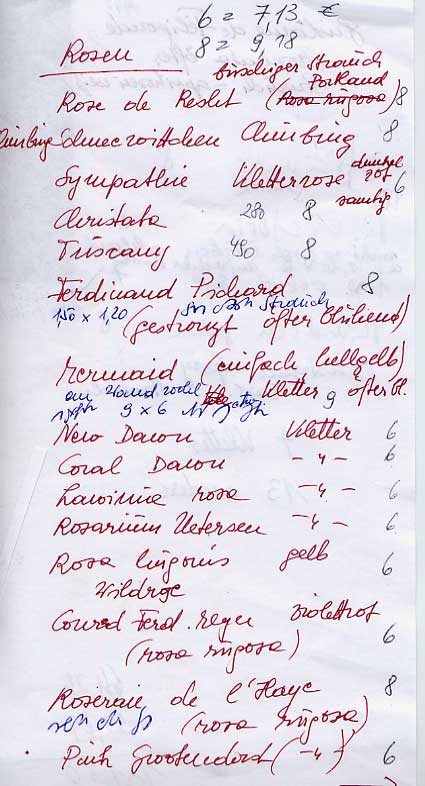 6 = 7,13 €
Rosen 8 = 9,18
buschiger Strauch
Portland
Rose de Resht (Rosa rugosa) 8
Climbing Schneewittchen Climbing 8
Sympathie Kletterrose dunkel rot samtig 6
Christata 280 8
Tuscany 490 8
Ferdinand Pichard 8
1,50 x 1,20 Strauch
(gestreift öfter blühend)
Mermaid (einfach hellgelb)
9 x 6 Kletter 9 öfter bl.
New Dawn Kletter 6
Coral Dawn -"- 6
Lawinia rosa -"- 6
Rosarium Uetersen -"- 6
Rosa hugonis gelb 6
Wildrose
Conrad Ferd. Meyer violettrot
(rosa rugosa) 6
Roseraie de l'Haye 8
(rosa rugosa)
Pink Grootendorst (-"-) 6